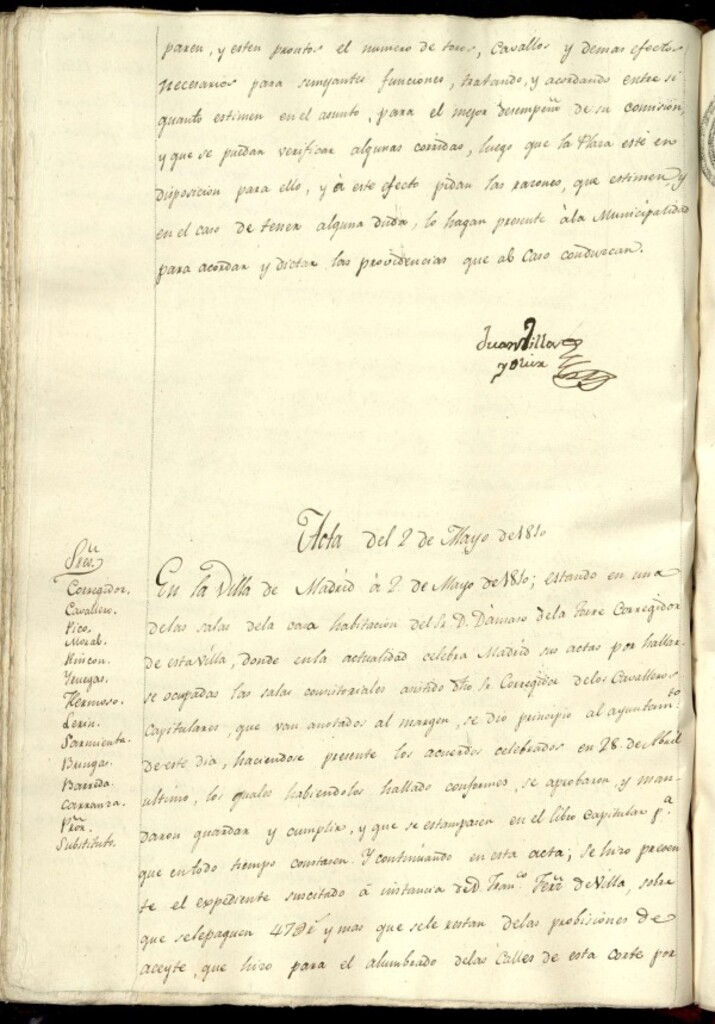 paren, y esten prontos el numero de toros, Cavallos y demas efectos
necesarios para semejantes funciones, tratando, y acordando entre si
quanto estimen en el asunto, para el mejor desempeñ.º de su comisión,
y que se puedan verificar algunas corridas, luego que la Plaza esté en
disposicion para ello, y á este efecto pidan las razones, que estimen, y
en el caso de tener alguna duda, lo hagan presente à la Municipalidad
para acordar y dictar las providencias que al caso conduzcan.
Juan Villa
y Olier
Acta del 2 de Mayo de 1810
S.res
Corregidor.
Cavallero.
Pico.
Moral.
Rincon.
Yruegas.
Hermoso.
Lerin.
Sarmiento.
Barreda.
Carranza.
Pror.
Substituto.
En la Villa de Madrid à 2 de Mayo de 1810; estando en una
de las salas dela casa habitacion del Sr. D. Dámaso dela Torre Corregidor
de esta Villa, donde en la actualidad celebra Madrid sus actas por hallar-
se ocupadas las salas consistoriales asistido dho Sr. Corregidor delos Cavalleros
Capitulares, que van anotados al margen, se dio principio al ayuntam.to
de este dia, haciendose presente los acuerdos celebrados en 28 de Abril
ultimo, los quales habiendolos hallado conformes, se aprobaron, y man-
daron guardar y cumplir, y que se estampasen en el libro Capitular p.ª
que en todo tiempo constasen. Y continuando en esta acta; se hizo presen
te el expediente suscitado á instancia de D. Fran.co Ferz de Villa, sobre
que sele paguen y mas que sele restan delas probisiones de
aceyte, que hizo para el alumbrado delas Calles de esta Corte por